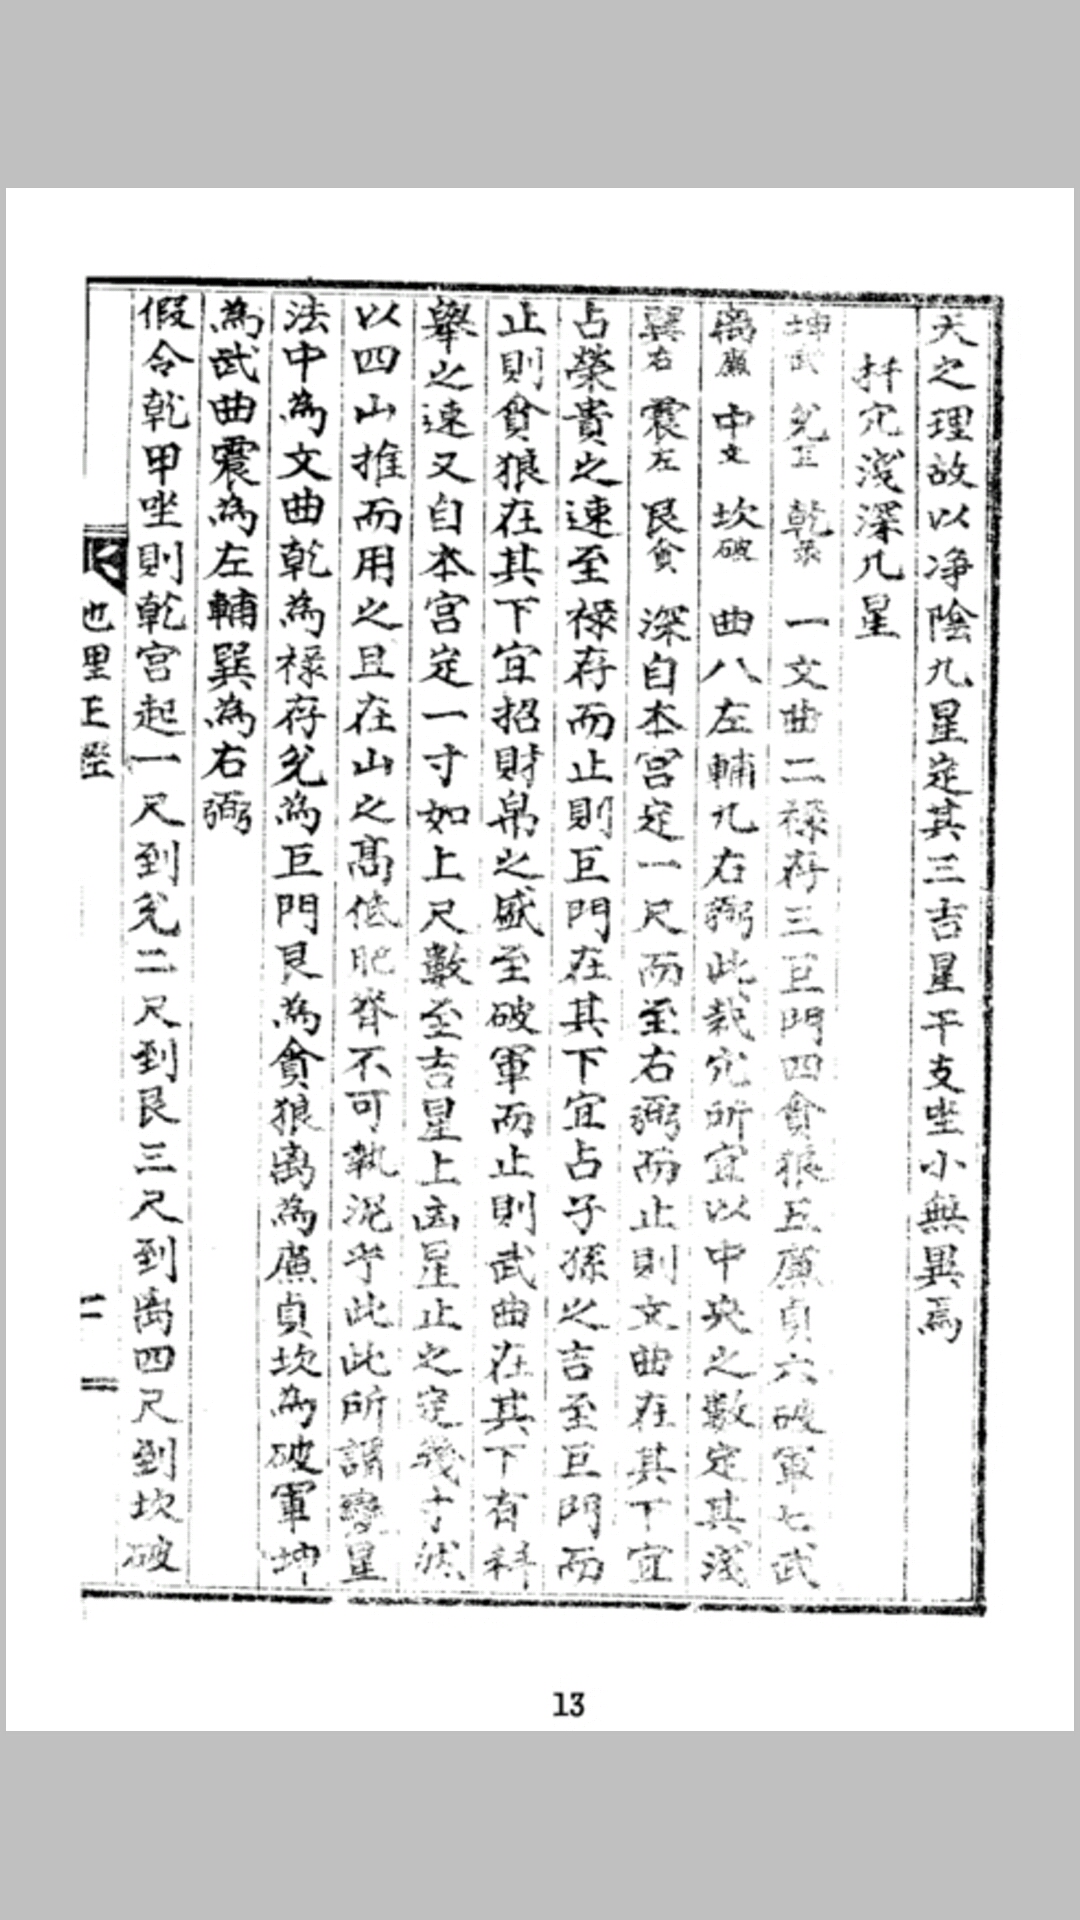 天之理故以凈陰九星定其三吉星干支坐小無異焉
扦穴淺深九星
坤武 兊巨 乾祿 一文曲二祿存三巨門四貪狼五廉貞六破軍七武
离廉 中文 坎破 曲八左輔九右弼此裁穴所宜以中央之數定其淺
巽右 震左 艮貪 深自本宮定一尺而至右弼而止則文曲在其下宜
占榮貴之速至祿存而止則巨門在其下宜占子孫之吉至巨門而
止則貪狼在其下宜招財帛之盛至破軍而止則武曲在其下有科
舉之速又自本宮定一寸如上尺數至吉星上凶星止之定幾寸然
以四山推而用之且在山之高低肥瘠不可執泥乎此此所謂變星
法中為文曲乾為祿存兊為巨門艮為貪狼离為廉貞坎為破軍坤
為武曲震為左輔巽為右弼
假令乾甲坐則乾宮起一尺到兊二尺到艮三尺到离四尺到坎破
地里正
二
13